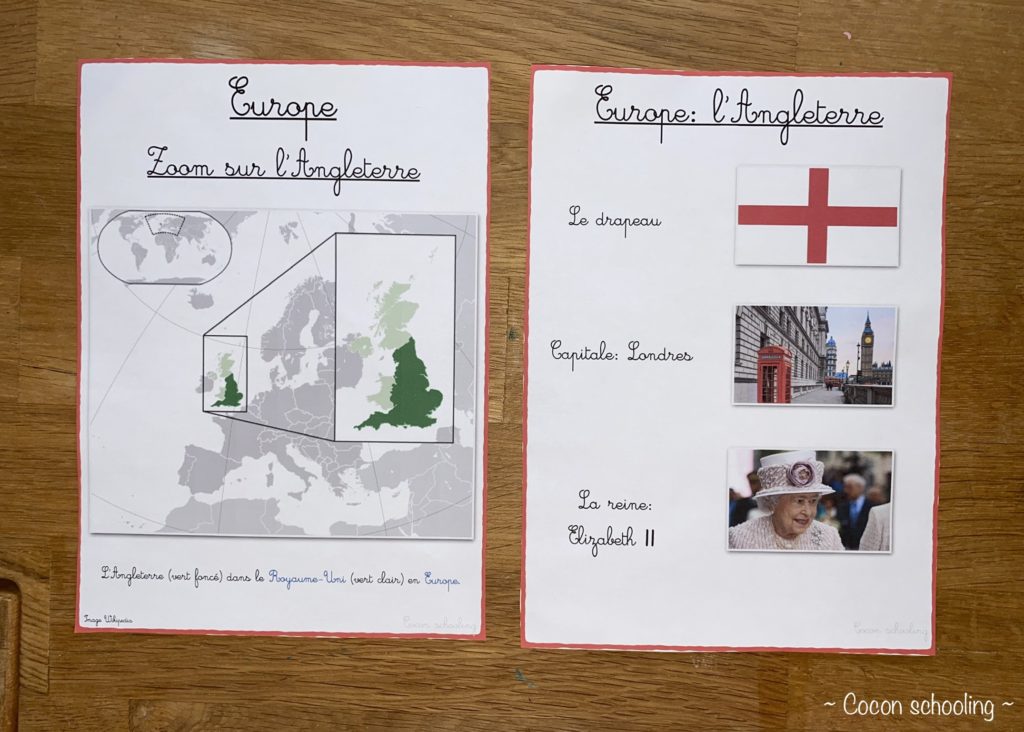 Europe
Zoom sur l'Angleterre
L'Angleterre (vert foncé) dans le Royaume-Uni (vert clair) en Europe.
Image Wikipedia
Cocon schooling
Europe: l'Angleterre
Le drapeau
Capitale: Londres
La reine:
Elizabeth II
Cocon schooling
~ Cocon schooling ~